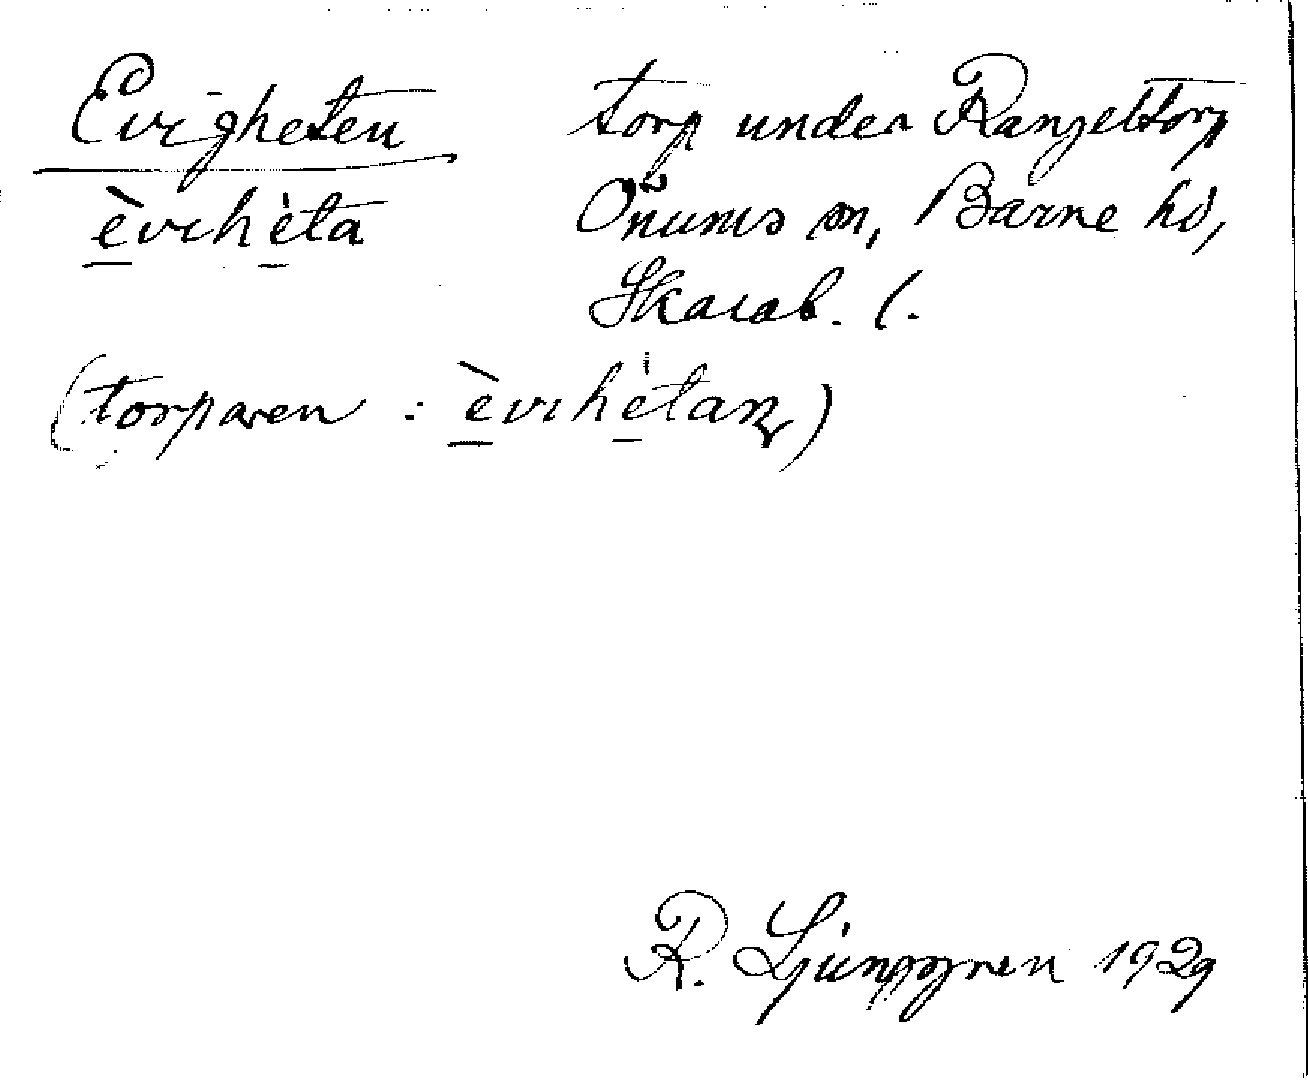 Evigheten torp under Ranzeltorp
èvıhèta Önums sn, Barne hd,
Skarab. l.
(torparen : èvıhètaɳ)
R. Ljunggren 1929